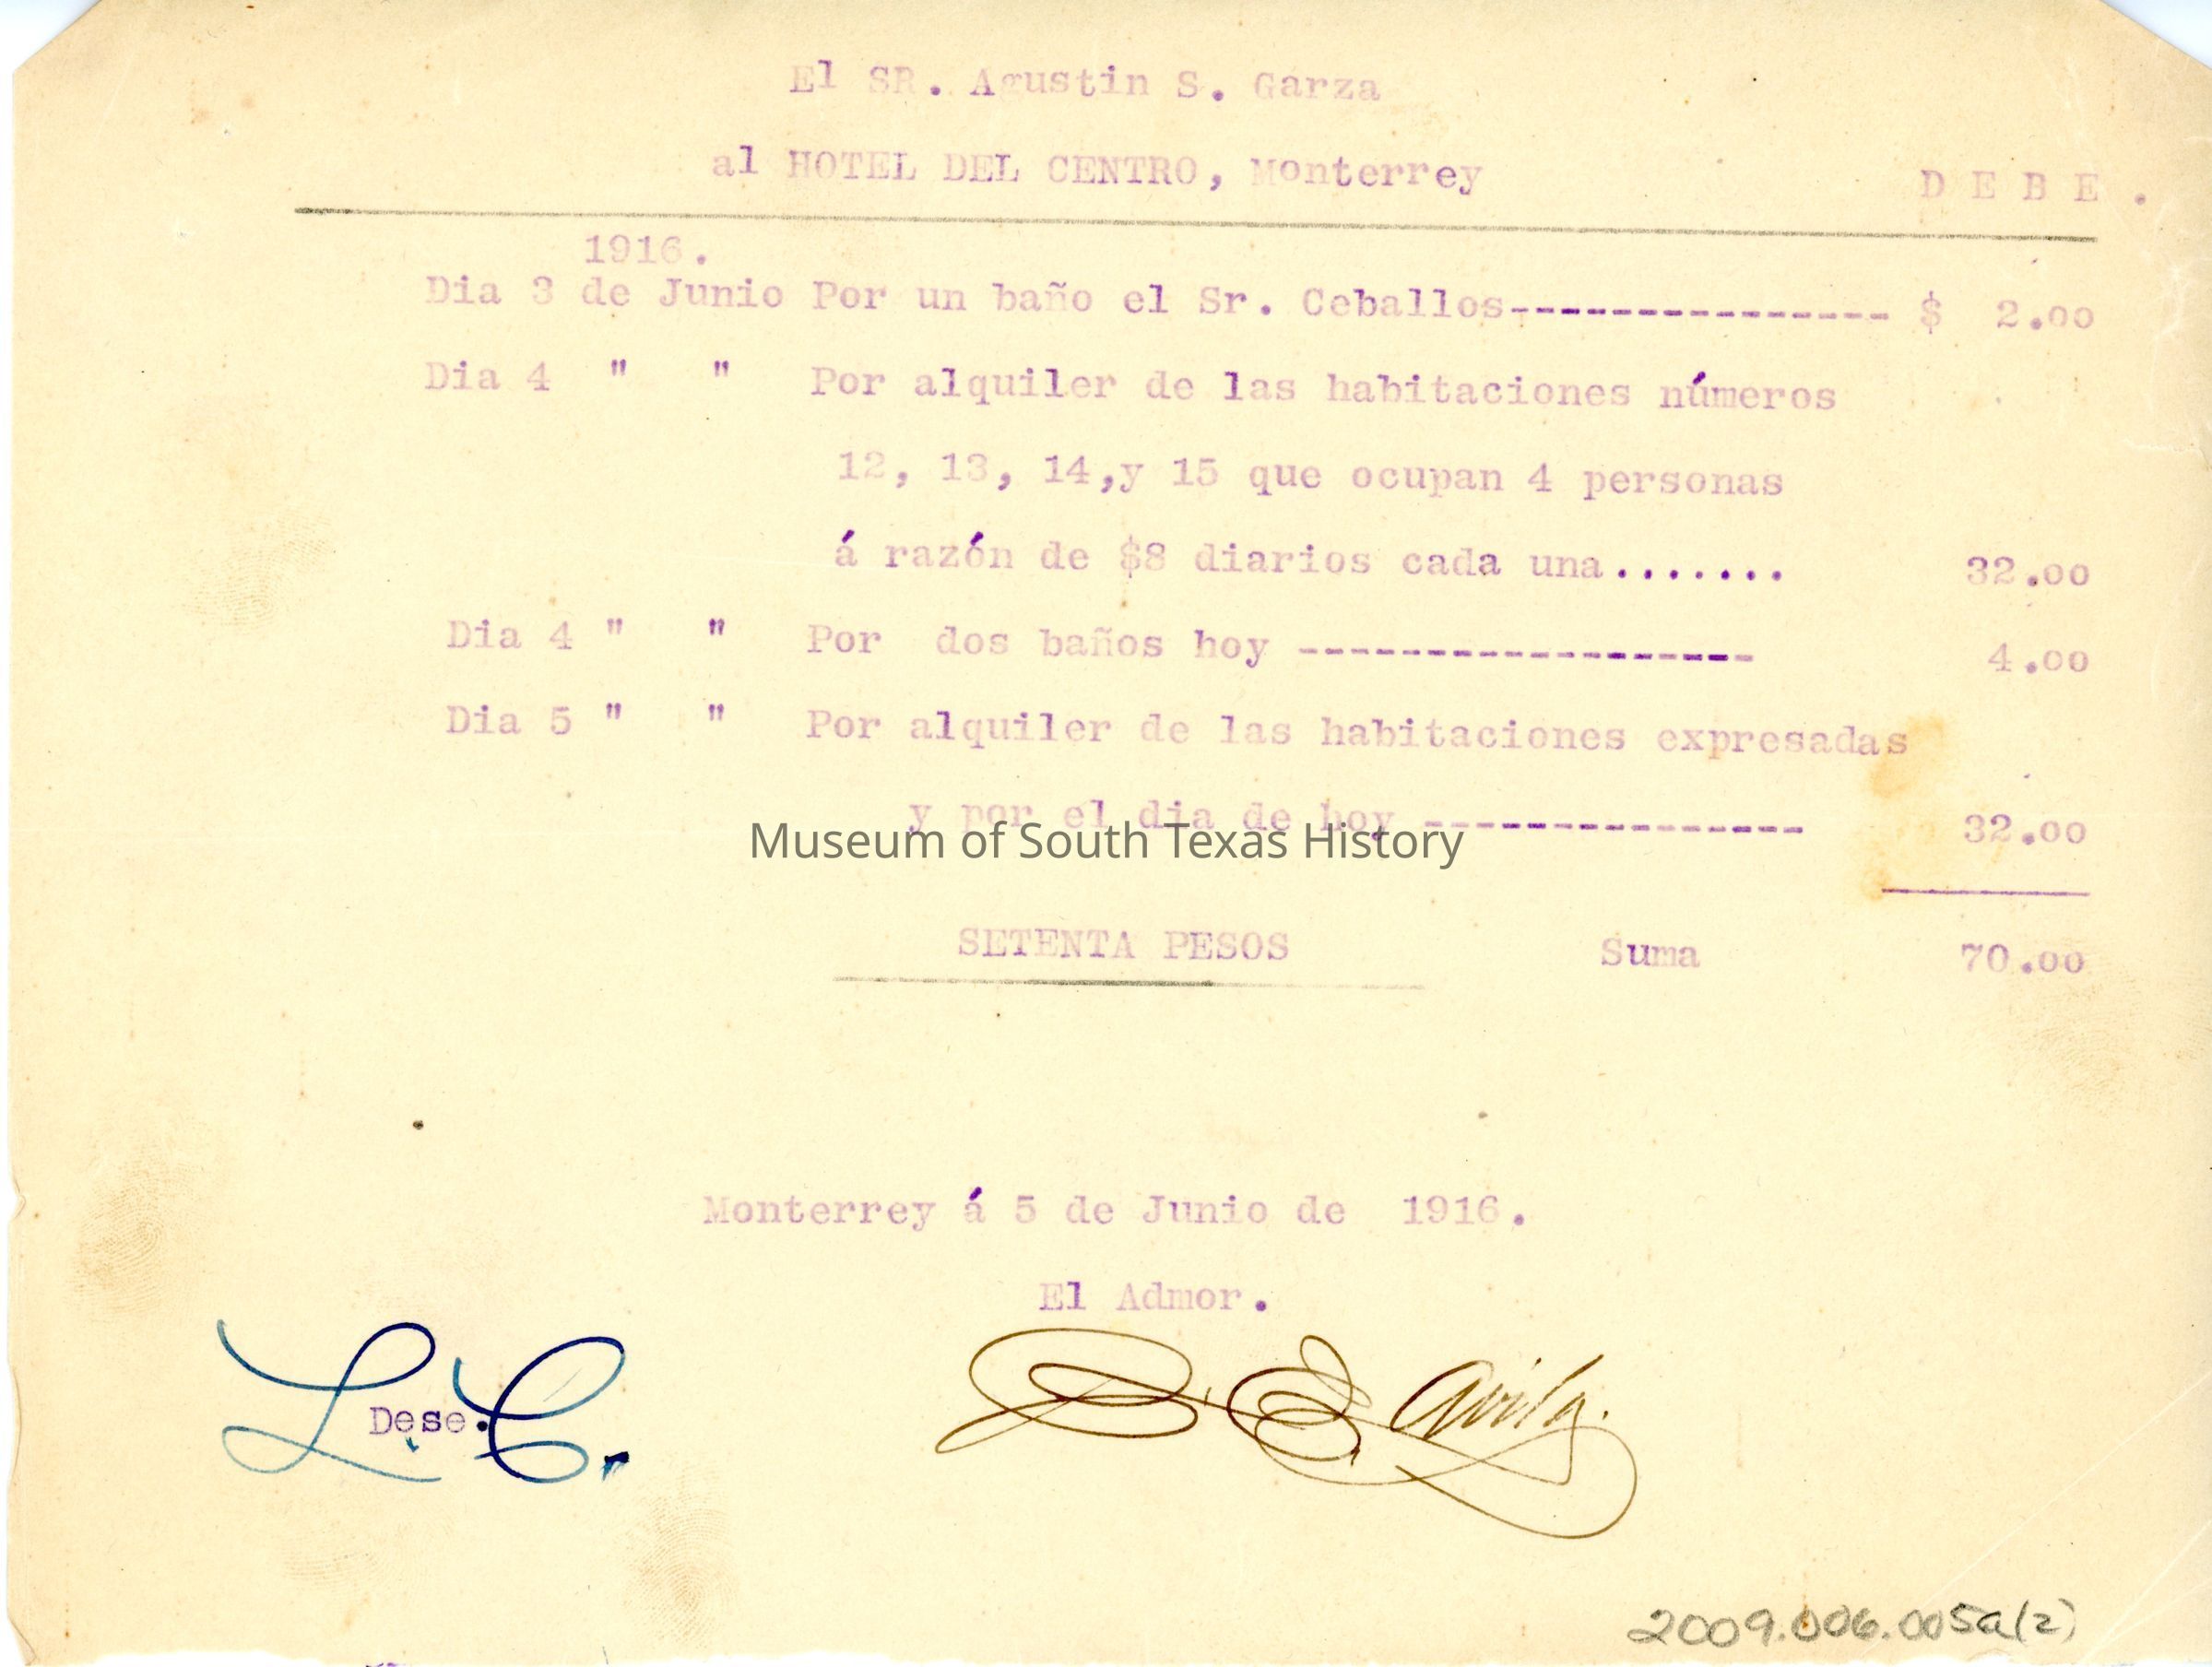 El SR. Agustin S. Garza
al HOTEL DEL CENTRO, Monterrey D E B E .
1916.
Dia 3 de Junio Por un baño el Sr. Ceballos----------------- $ 2.00
Dia 4 " " Por alquiler de las habitaciones números
12, 13, 14,y 15 que ocupan 4 personas
á razón de $8 diarios cada una....... 32.00
Dia 4 " " Por dos baños hoy ------------------ 4.00
Dia 5 " " Por alquiler de las habitaciones expresadas
y por el dia de hoy --------------- 32.00
Museum of South Texas History
SETENTA PESOS Suma 70.00
Monterrey á 5 de Junio de 1916.
El Admor.
L. C.
Dese.
E. Avila.
2009.006.005a(2)